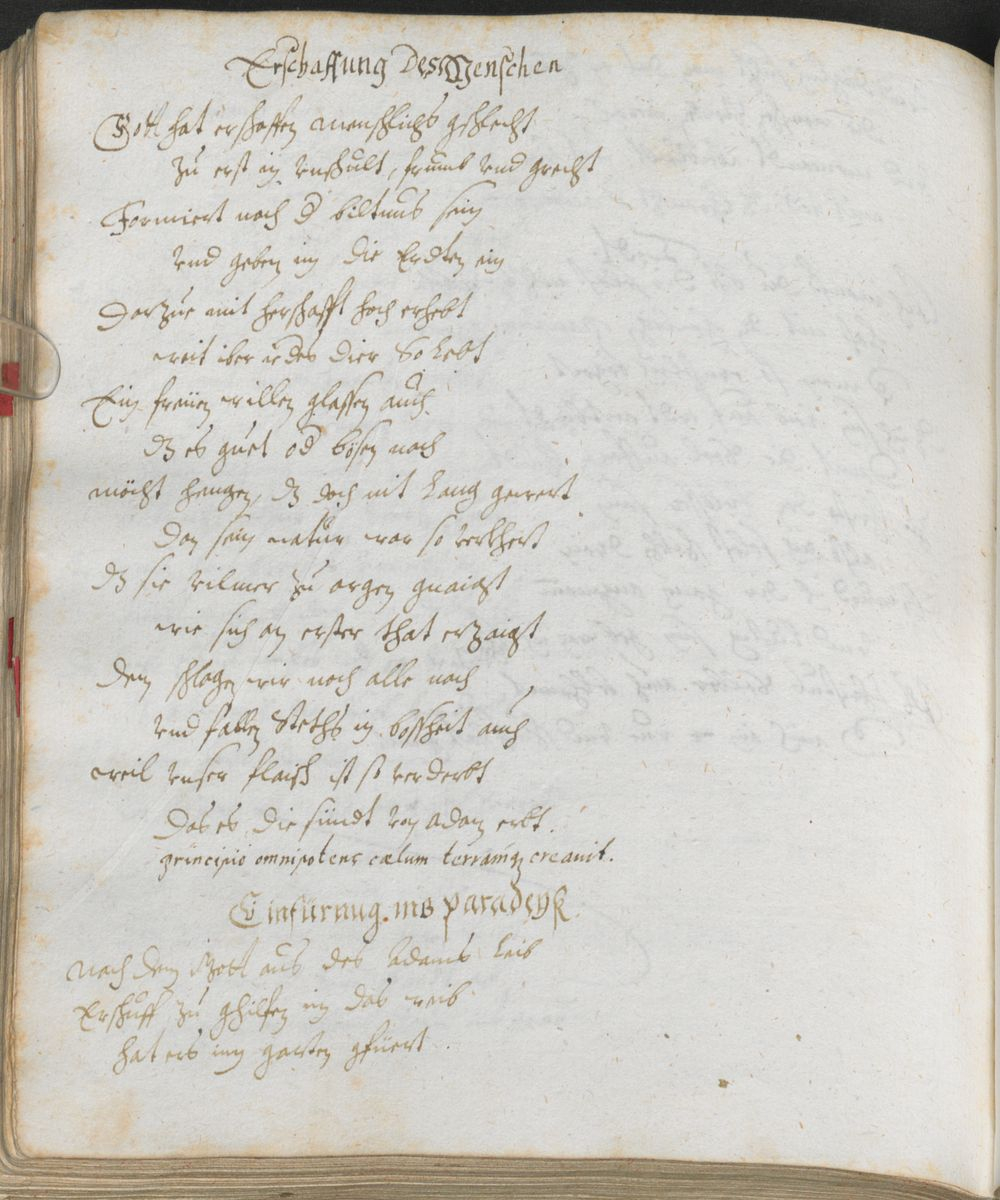 Erschaffung Des Menschen
Gott hat erschaffen menschlichs gschlecht
zu erst in unschult, frumb und grecht
Formiert nach d biltnus sein
und geben im die Erdten ein
Darzue mit herschafft hoch erhebt
weit iber iedes dier So lebt
Ein freüen willen glassen auch
dz es guet od bösen nach
möcht hengen, dz doch nit lang gewert
dan sein natur war so verkhert
dz sie vilmer zu argen gnaigt
wie sich an erster that erzaigt
dem schlagen wir noch alle nach,
und fallen Steths in bossheit auch
weil unser flaisch ist so verderbt
Das es die sündt von adam erbt.
principio omnipotens cælum terramqz creavit.
Einfürung. ins paradeyß.
nach dem Gott aus des Adams leib
Erschuff zu ghilfen im das weib
hat ers inn garten gfüert